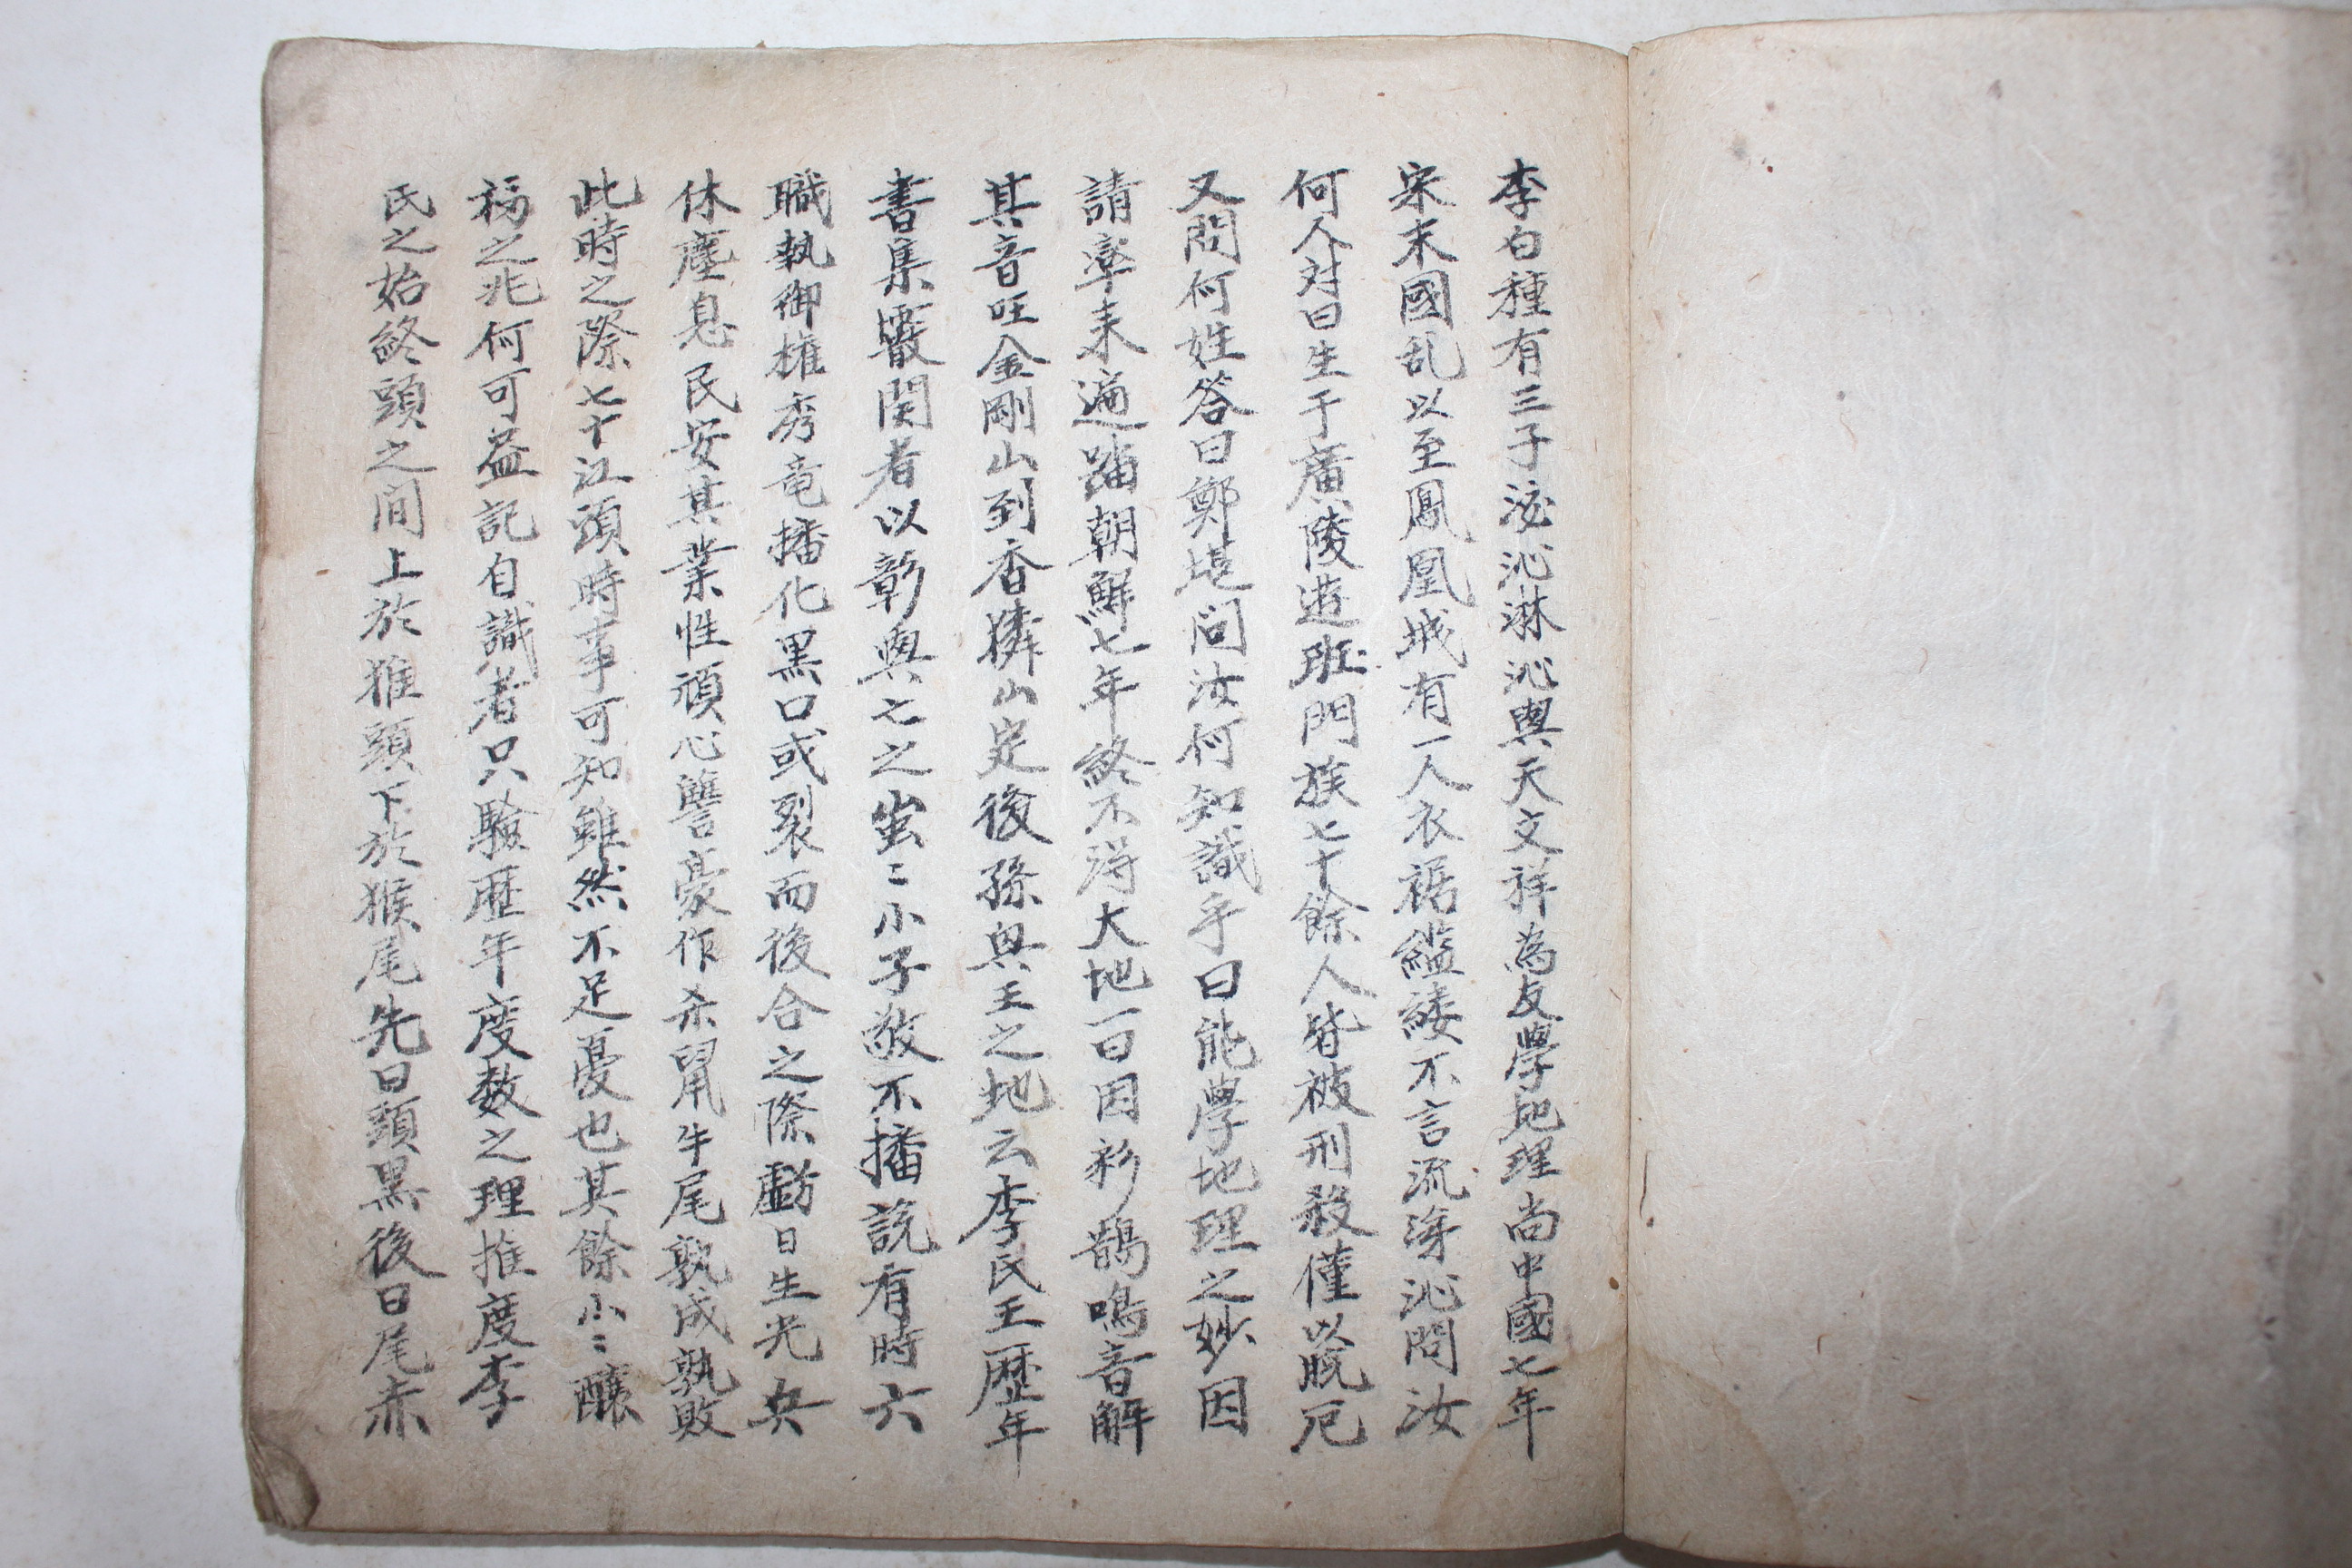 李白種有三子泌沁淋沁與天文祥為友學地理尚中國七年
宋末國乱以至鳳凰城有一人衣裾繿縷不言流淂沁問汝
何人対曰生于廣陵遊班門族七十餘人皆被刑殺僅以脱厄
又問何姓答曰鄭堪问汝何知識乎曰能學地理之妙因
請率来遍踏朝鮮七年終不淂大地一日因彩鵲鳴音解
其音旺金剛山到香獜山定後孫興王之地云李氏王歴年
書集覈関者以彰與七之蚩〻小子敬不播説有時六
職執御権秀竜播化黒口或裂而後合之際戯日生光兵
休塵息民安其業性頑心讐豪作杀鼠牛尾孰成孰敗
此時之際七十江頭時事可知雖然不足憂也其餘小〻釀
禍之兆何可益記自識者只驗歴年度数之理推度李
氏之始終頭之间上於猚頭下於猴尾先曰頭黒後曰尾赤